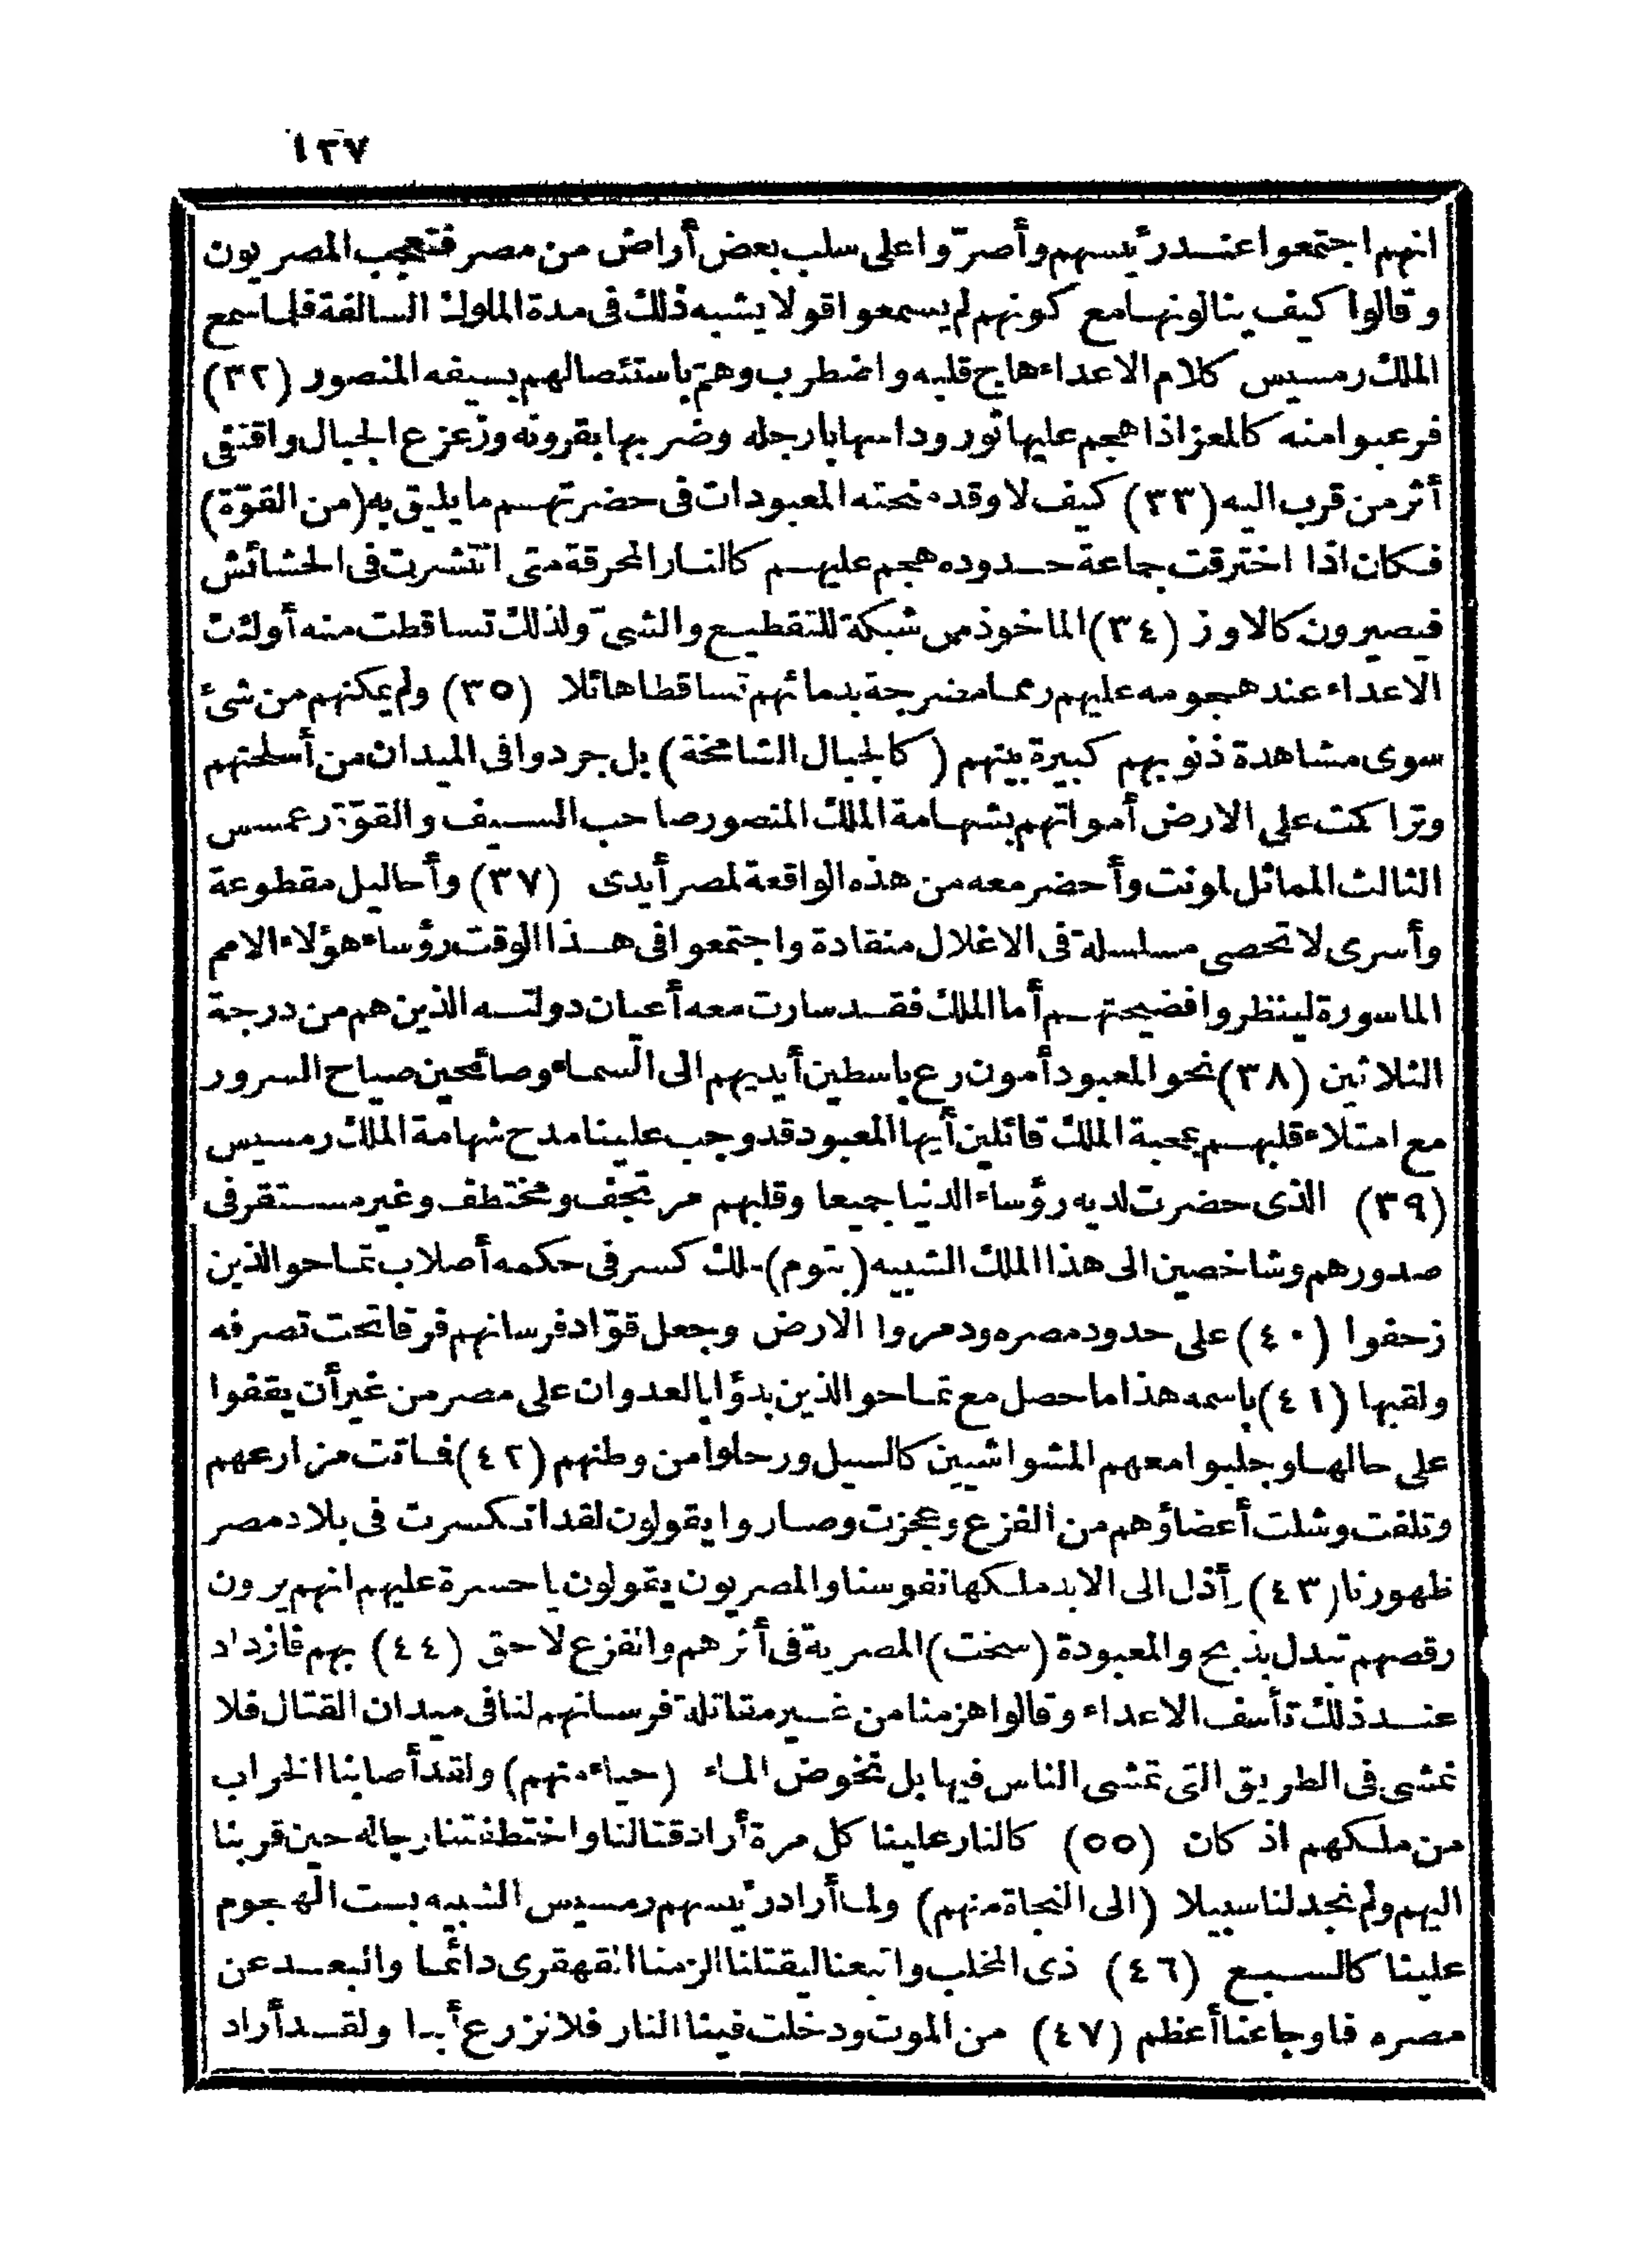 ١٣٧
انهم اجتمعوا عند رئيسهم وأصرّوا على سلب بعض أراض من مصر فتعجب المصريون
وقالوا كيف ينالونها مع كونهم لم يسمعوا قولا يشبه ذلك فى مدة الملوك السالفة فلما سمع
الملك رمسيس كلام الاعداء هاج قلبه واضطرب وهمّ باستئصالهم بسيفه المنصور (٣٢)
فرعبوا منه كالمعز اذا هجم عليها ثور وداسها بارجله وضربها بقرونه وزعزع الجبال واقتفى
أثر من قرب اليه (٣٣) كيف لا وقد منحته المعبودات فى حضرتهم ما يليق به (من القوّة)
فكان اذا اخترقت جماعة حدوده هجم عليهم كالنار المحرقة متى انتشرت فى الحشائش
فيصيرون كالاوز (٣٤) الماخوذ من شبكة للتقطيع والشىّ ولذلك تساقطت منه أولئك
الاعداء عند هجومه عليهم رمما مضرجة بدمائهم تساقطا هائلا (٣٥) ولم يمكنهم من شئ
سوى مشاهدة ذنوبهم كبيرة بينهم (كالجبال الشامخة) بل جردوا فى الميدان من أسلحتهم
وتراكمت على الارض أمواتهم بشهامة الملك المنصور صاحب السيف والقوّة رعمسس
الثالث المماثل لمونت وأحضر معه من هذه الواقعة لمصر أيدى (٣٧) وأحاليل مقطوعة
وأسرى لا تحصى مسلسلة فى الاغلال منقادة واجتمعوا فى هذا الوقت رؤساء هؤلاء الامم
الماسورة لينظروا فضيحتهم أما الملك فقد سارت معه أعيان دولته الذين هم من درجة
الثلاثين (٣٨) نحو المعبود أمون رع باسطين أيديهم الى السماء وصائحين صياح السرور
مع امتلاء قلبهم بمحبة الملك قائلين أيها المعبود قد وجب علينا مدح شهامة الملك رمسيس
(٣٩) الذى حضرت لديه رؤساء الدنيا جميعا وقلبهم مرتجف ومختطف وغير مستقر فى
صدورهم وشاخصين الى هذا الملك الشبيه (بتوم) ملك كسر فى حكمه أصلاب تماحو الذين
زحفوا (٤٠) على حدود مصره ودمروا الارض وجعل قوّاد فرسانهم فرقا تحت تصرفه
ولقبها (٤١) باسمه هذا ما حصل مع تماحو الذين بدؤا بالعدوان على مصر من غير أن يقفوا
على حالها وجلبوا معهم المشواشيين كالسيل ورحلوا من وطنهم (٤٢) فماتت مزارعهم
وتلفت وشلت أعضاؤهم من الفزع وعجزت وصاروا يقولون لقد انكسرت فى بلاد مصر
ظهورنا (٤٣) وأذل الى الابد ملكها نفوسنا والمصريون يقولون يا حسرة عليهم انهم يرون
رقصهم تبدل بذبح والمعبودة (سخت) المصرية فى أثرهم والفزع لاحق (٤٤) بهم فازداد
عند ذلك تأسف الاعداء وقالوا هزمنا من غير مقاتلة فرسانهم لنا فى ميدان القتال فلا
نمشى فى الطريق التى تمشى الناس فيها بل نخوض الماء (حياء منهم) ولقد أصابنا الخراب
من ملكهم اذ كان (٥٥) كالنار علينا كل مرة أراد قتالنا واختطفتنا رجاله حين قربنا
اليهم ولم نجد لنا سبيلا (الى النجاة منهم) ولما أراد رئيسهم رمسيس الشبيه بست الهجوم
علينا كالسبع (٤٦) ذى المخلب واتبعنا ليقتلنا الزمنا القهقرى دائما والبعد عن
مصره فاوجاعنا أعظم (٤٧) من الموت ودخلت فينا النار فلا نزرع أبدا ولقد أراد